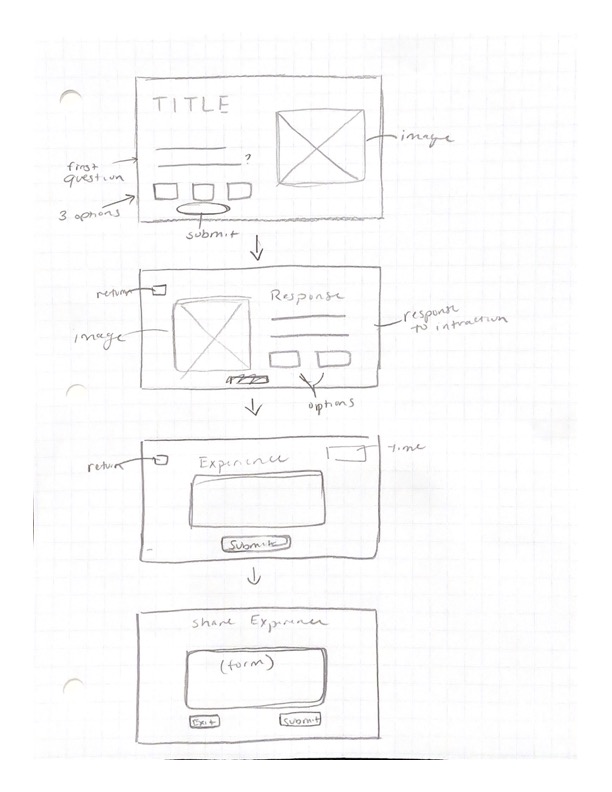 TITLE
image
first
question
?
3 options
submit
return
Response
response
to intraction
image
options
return
Experience
time
Submit
Share Experience
(form)
Exit
Submit